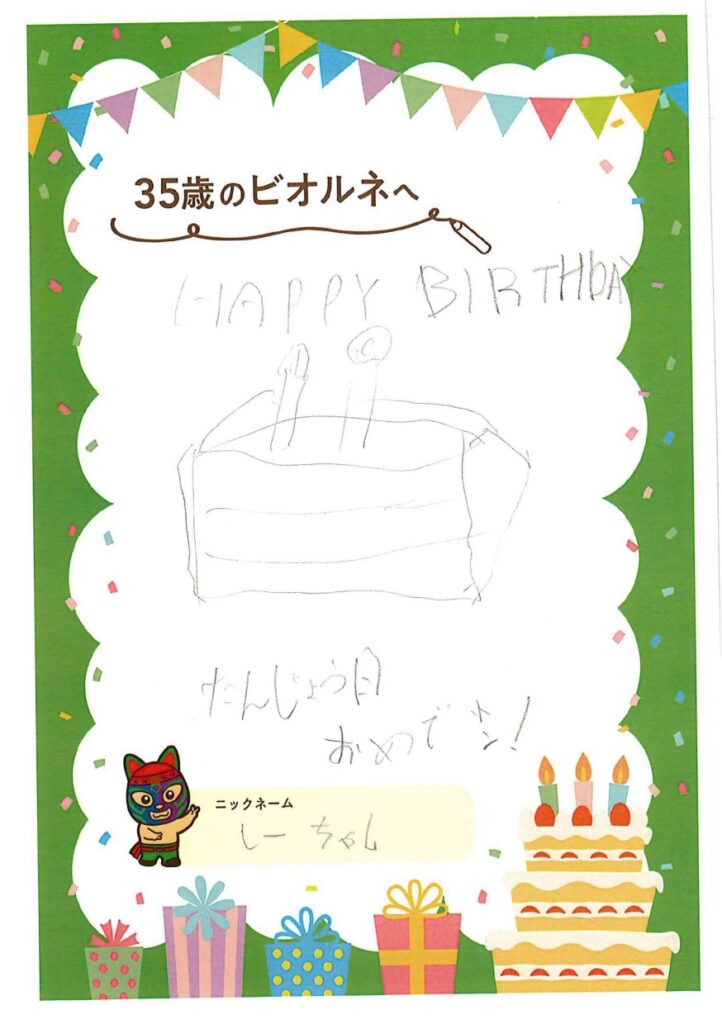 35歳のビオルネへ
HAPPY BIRTHDA
たんじょう日
おめでとう!
ニックネーム
しーちゃん